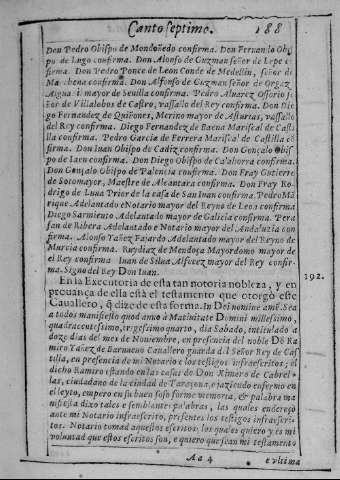 Canto septimo. 188
Don Pedro Obispo de Mondoñedo confirma. Don Fernando Obis
po de Lugo confirma. Don Alonso de Guzman señor de Lepe co
firma. Don Pedro Ponce de Leon Conde de Medellin, señor de
Marchena confirma. Don Alfonso de Guzman señor de Orgaz
Algua i mayor de Seuilla confirma. Pedro Aluarez Ossorio se
ñor de Villalobos de Castro, vassallo del Rey confirma. Don Die
go Fernandez de Quiñones, Merino mayor de Asturias, vassallo
del Rey confirma. Diego Fernandez de Baena Mariscal de Casti
lla confirma. Pedro Garcia de Ferrera Mariscal de Castilla co
firma. Don Iuan Obispo de Cadiz confirma. Don Gonçalo Obis
po de Iaen confirma. Don Diego Obispo de Calahorra confirma.
Don Gonçalo Obispo de Palencia confirma. Don Fray Gutierre
de Sotomayor, Maestre de Alcantara confirma. Don Fray Ro
drigo de Luna Prior de la casa de San Iuan confirma. Pedro Má
rique Adelantado e Notario mayor del Reyno de Leon confirma
Diego Sarmiento Adelantado mayor de Galicia confirma. Pera
fan de Ribera Adelantado e Notario mayor del Andaluzia con
firma. Alonso Yañez Fajardo Adelantado mayor del Reyno de
Murcia confirma. Ruydiaz de Mendoça Mayordomo mayor de
el Rey confirma Iuan de Silua Alferez mayor del Rey confir
ma. Signo del Rey Don Iuan.
En la Executoria de esta tan notoria nobleza, y en 192.
prouança de ella està el testamento que otorgò este
Cauallero, q̃ dize de esta forma. In Dei nomine amē. Sea
a todos manifiesto quod anno à Natiuitate Domini millesimo,
quadracentesimo, trigesimo quarto, dia Sabado, intitulado a
doze dias del mes de Nouiembre, en presencia del noble Dō Ra
miro Yañez de Barnueuo Cauallero guarda del Señor Rey de Cas
tilla, en presencia de mi Notario e los testigos infraescritos; el
dicho Ramiro estando en las casas de Don Ximeno de Cabrel
las, ciudadano de la ciudad de Taraçona, e jaziendo enfermo en
el leyto, empero en su buen seso forme memoria, & palabra ma
nifiesta dixo tales e semblantes palabras, las quales endereçò
ante mi Notario infraescrito, presentes los testigos infraescri-
tos. Notario tomad aquestos escritos, los quales quiero y es mi
voluntad que estos escritos son, e quiero que sean mi testamento
Aa 4 e vltima